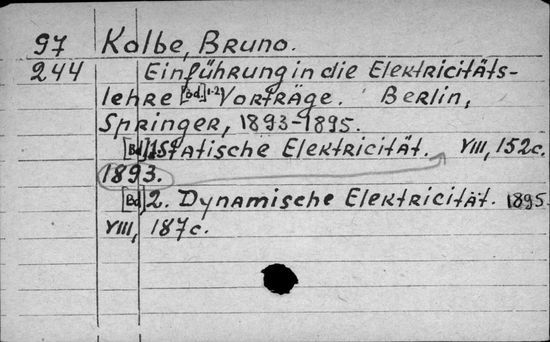 97 Kolbe, Bruno.
244 Einführung in die Elektricitäts-
lehre [Bd.] 1-2. Vorträge. Berlin,
Springer, 1893-1895.
[Bd.] 1. Statische Elektricität. VIII, 152c.
1893.
[Bd.] 2. Dynamische Elektricität. 1895.
VIII, 187c.